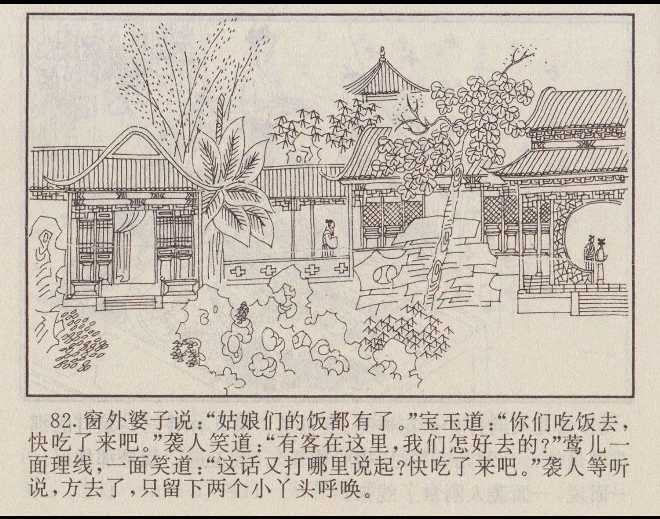 82.窗外婆子说:“姑娘们的饭都有了。”宝玉道:“你们吃饭去,
快吃了来吧。”袭人笑道:“有客在这里,我们怎好去的?”莺儿一
面理线,一面笑道:“这话又打哪里说起?快吃了来吧。”袭人等听
说,方去了,只留下两个小丫头呼唤。